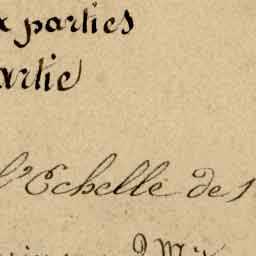 x parties
artie
l'Echelle de 1